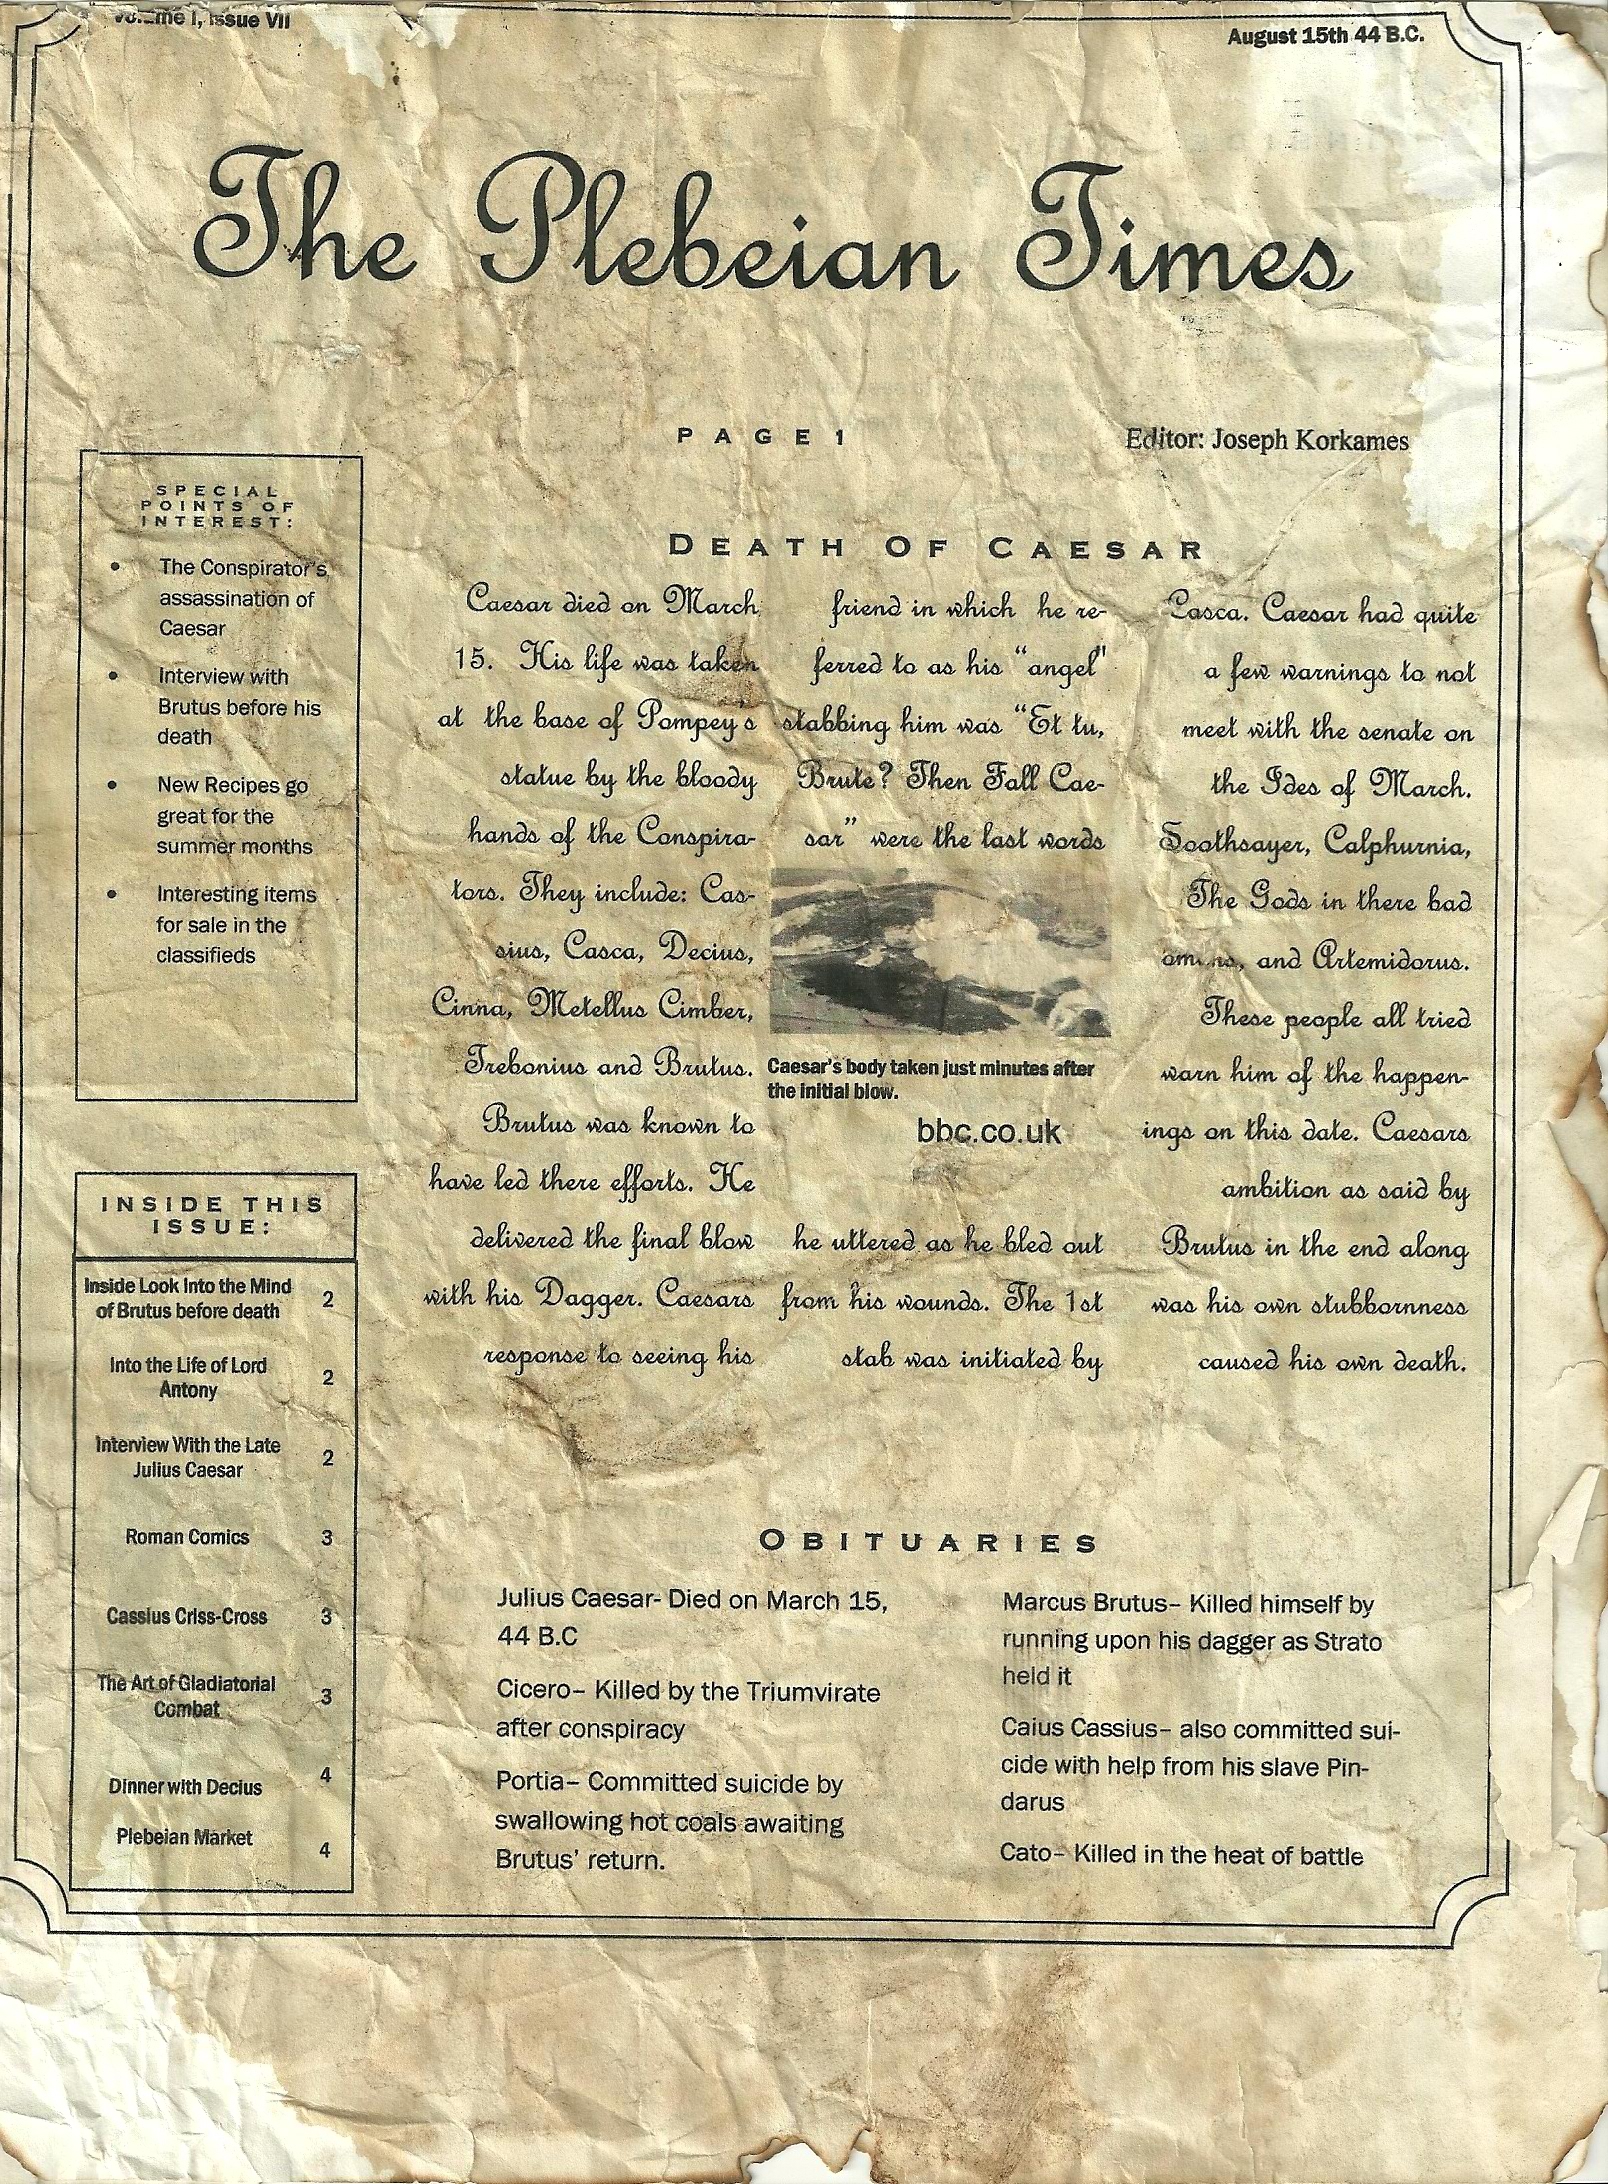 Volume I, Issue VII
August 15th 44 B.C.
The Plebeian Times
PAGE 1
Editor: Joseph Korkames
SPECIAL
POINTS OF
INTEREST:
• The Conspirator's
assassination of
Caesar
• Interview with
Brutus before his
death
• New Recipes go
great for the
summer months
• Interesting items
for sale in the
classifieds
INSIDE THIS
ISSUE:
Inside Look Into the Mind
of Brutus before death 2
Into the Life of Lord
Antony 2
Interview With the Late
Julius Caesar 2
Roman Comics 3
Cassius Criss-Cross 3
The Art of Gladiatorial
Combat 3
Dinner with Decius 4
Plebeian Market 4
DEATH OF CAESAR
Caesar died on March
15. His life was taken
at the base of Pompey's
statue by the bloody
hands of the Conspira-
tors. They include: Cas-
sius, Casca, Decius,
Cinna, Metellus Cimber,
Trebonius and Brutus.
Brutus was known to
have led there efforts. He
delivered the final blow
with his Dagger. Caesars
response to seeing his
friend in which he re-
ferred to as his "angel"
stabbing him was "Et tu,
Brute? Then Fall Cae-
sar" were the last words
Caesar's body taken just minutes after
the initial blow.
bbc.co.uk
he uttered as he bled out
from his wounds. The 1st
stab was initiated by
Casca. Caesar had quite
a few warnings to not
meet with the senate on
the Ides of March.
Soothsayer, Calphurnia,
The Gods in there bad
omens, and Artemidorus.
These people all tried
warn him of the happen-
ings on this date. Caesars
ambition as said by
Brutus in the end along
was his own stubbornness
caused his own death.
OBITUARIES
Julius Caesar- Died on March 15,
44 B.C
Cicero– Killed by the Triumvirate
after conspiracy
Portia– Committed suicide by
swallowing hot coals awaiting
Brutus' return.
Marcus Brutus– Killed himself by
running upon his dagger as Strato
held it
Caius Cassius– also committed sui-
cide with help from his slave Pin-
darus
Cato– Killed in the heat of battle